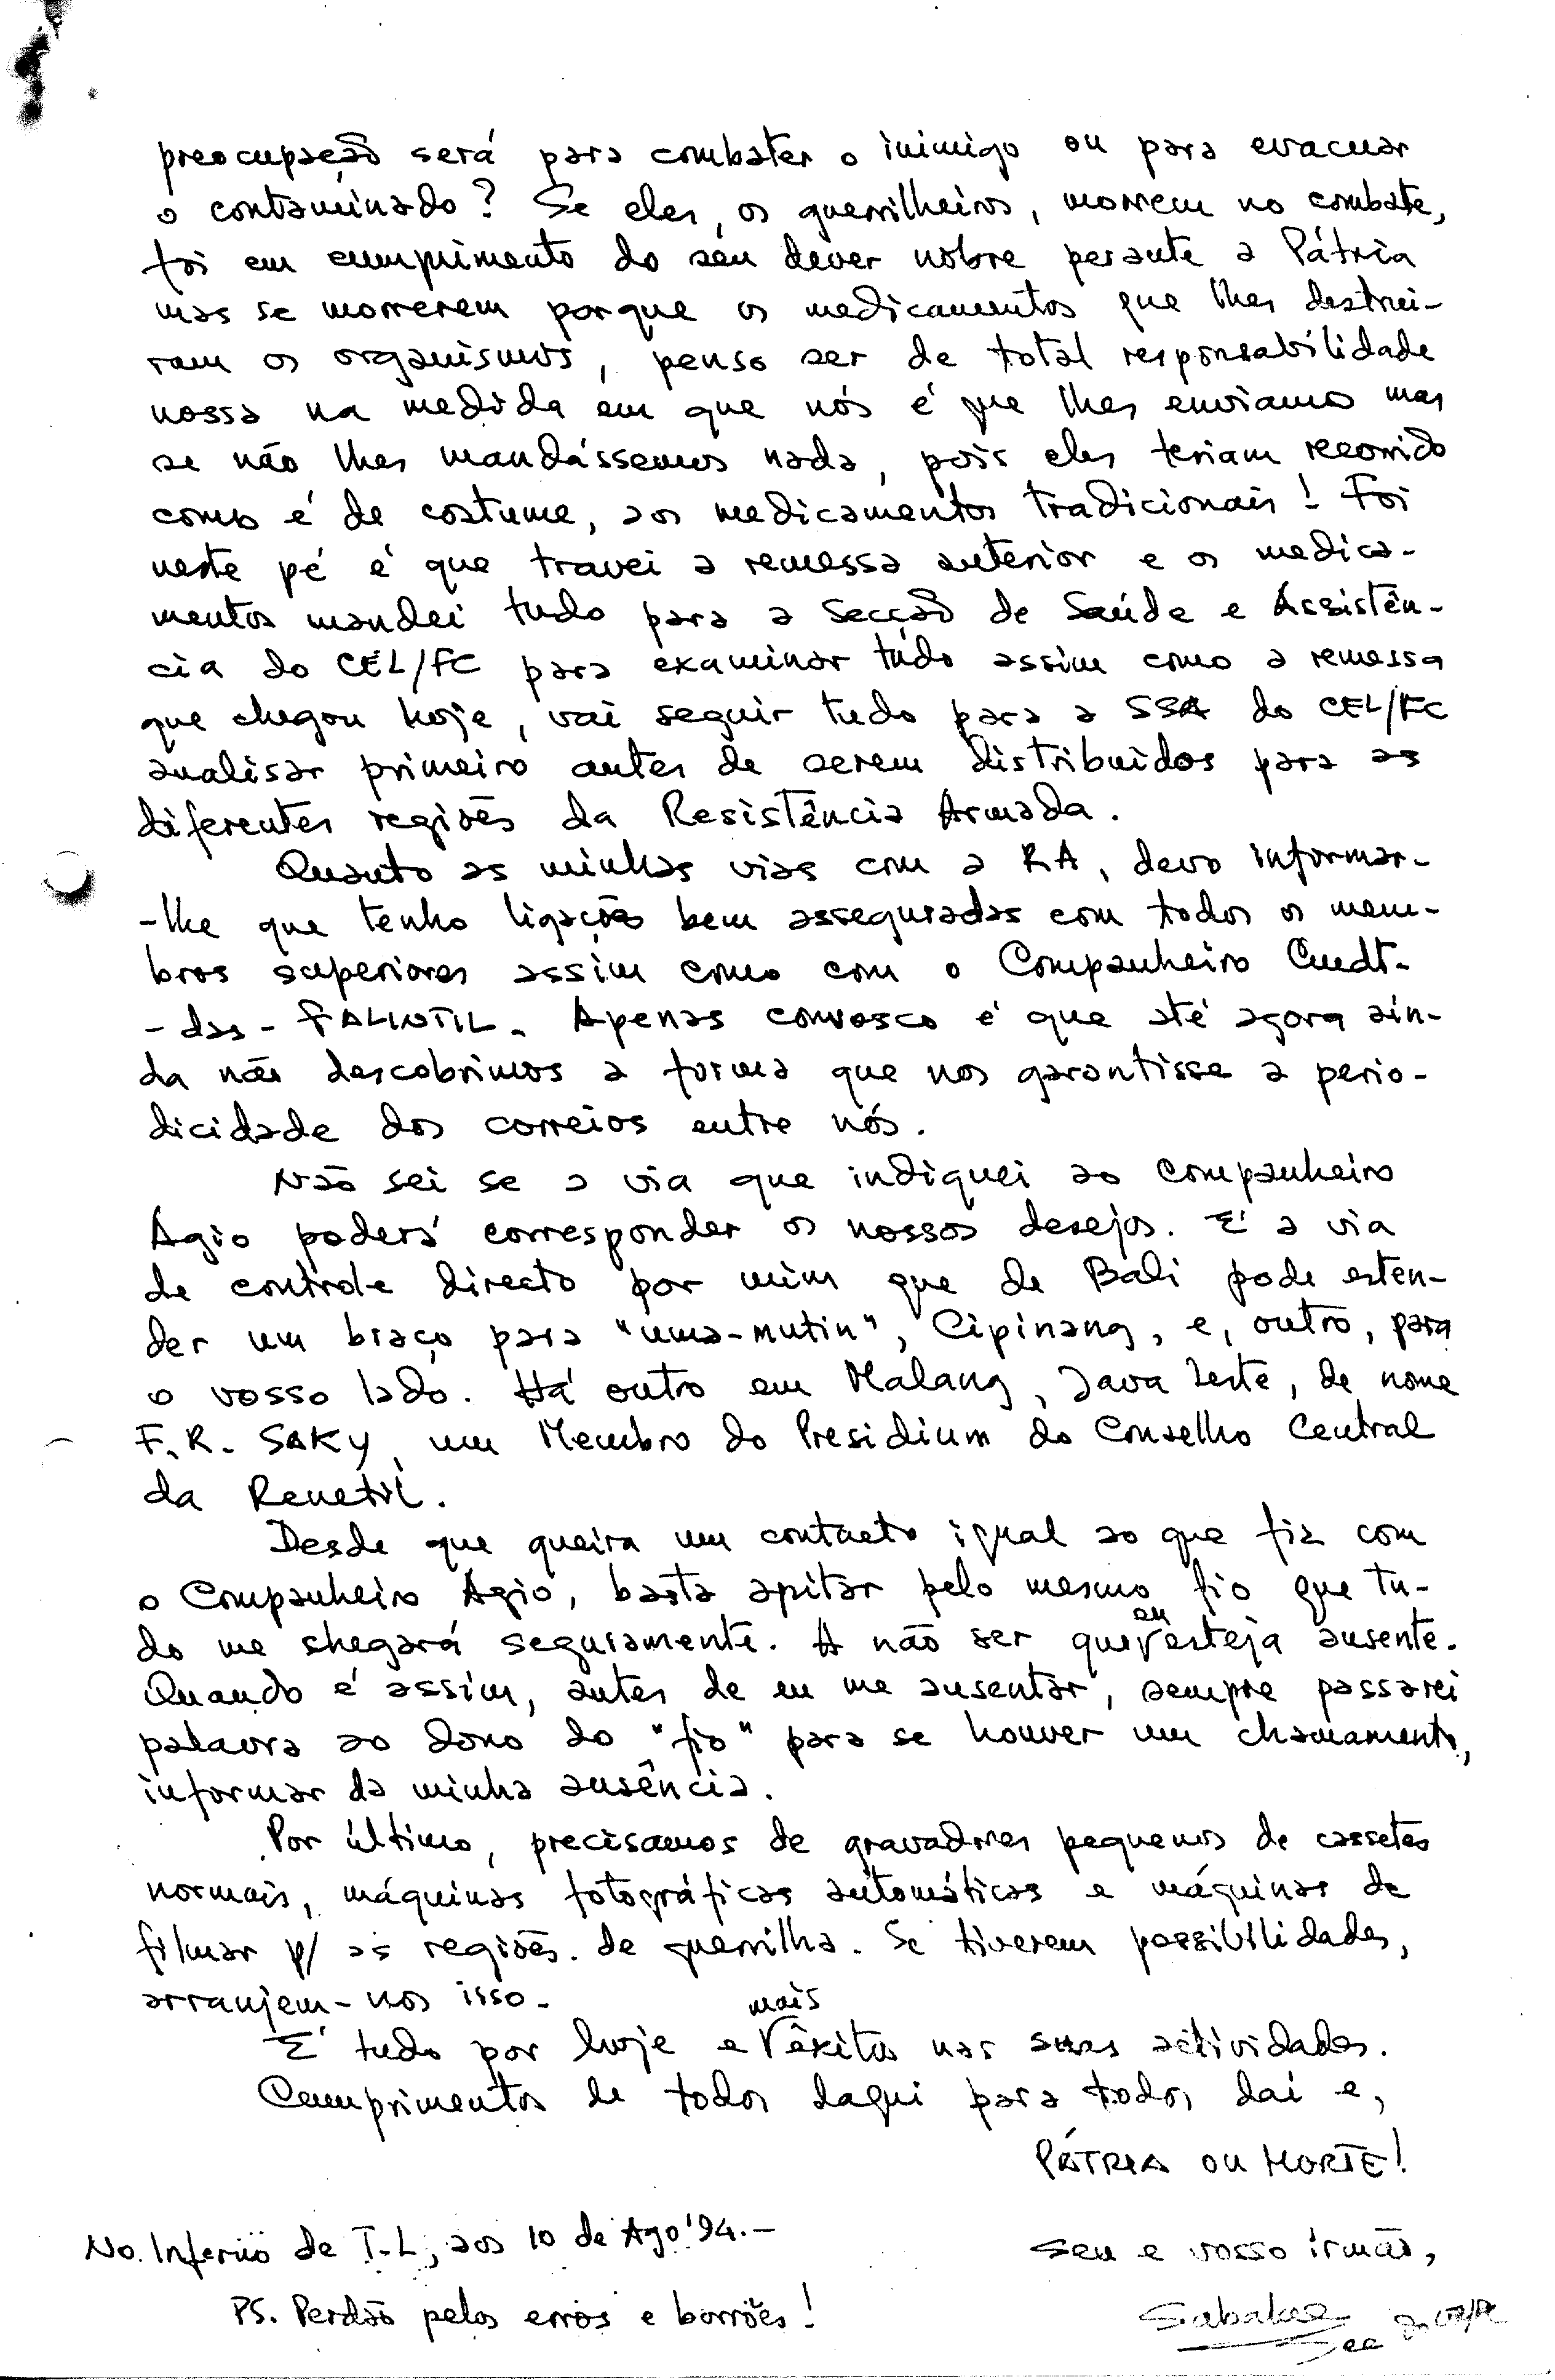 preocupação será para combater o inimigo ou para evacuar
o contaminado? Se eles, os guerrilheiros, morrem no combate,
foi em cumprimento do seu dever nobre perante a Pátria
mas se morrerem porque os medicamentos que lhes destrui-
ram os organismos, penso ser de total responsabilidade
nossa na medida em que nós é que lhes enviamos mas
se não lhes mandássemos nada, pois eles teriam recorrido
como é de costume, aos medicamentos tradicionais! Foi
neste pé é que travei a remessa anterior e os medica-
mentos mandei tudo para a Secção de Saúde e Assistên-
cia do CEL/FC para examinar tudo assim como a remessa
que chegou hoje, vai seguir tudo para a SSA do CEL/FC
analisar primeiro antes de serem distribuídos para as
diferentes regiões da Resistência Armada.
Quanto as minhas vias com a RA, devo informar-
-lhe que tenho ligações bem asseguradas com todos os mem-
bros superiores assim como com o Companheiro Cmdt-
-das-FALINTIL. Apenas convosco é que até agora ain-
da não descobrimos a forma que nos garantisse a perio-
dicidade dos correios entre nós.
Não sei se a via que indiquei ao Companheiro
Ágio poderá corresponder os nossos desejos. É a via
de controle directo por mim que de Bali pode esten-
der um braço para "uma-mutin", Cipinang, e, outro, para
o vosso lado. Há outro em Malang, Java Leste, de nome
F.R. SAKY, um Membro do Presidium do Conselho Central
da Renetil.
Desde que queira um contacto igual ao que fiz com
o Companheiro Ágio, basta apitar pelo mesmo fio que tu-
do me chegará seguramente. A não ser que eu esteja ausente.
Quando é assim, antes de eu me ausentar, sempre passarei
palavra ao dono do "fio" para se houver um chamamento,
informar da minha ausência.
Por último, precisamos de gravadores pequenos de cassetes
normais, máquinas fotográficas automáticas e máquinas de
filmar p/ as regiões de guerrilha. Se tiverem possibilidades,
arranjem-nos isso.
É tudo por hoje e mais êxitos nas suas actividades.
Cumprimentos de todos daqui para todos daí e,
PÁTRIA OU MORTE!
No Inferno de T-L, aos 10 de Ago'94.-
seu e vosso irmão,
PS. Perdão pelos erros e borrões!
Sabalae
Sec